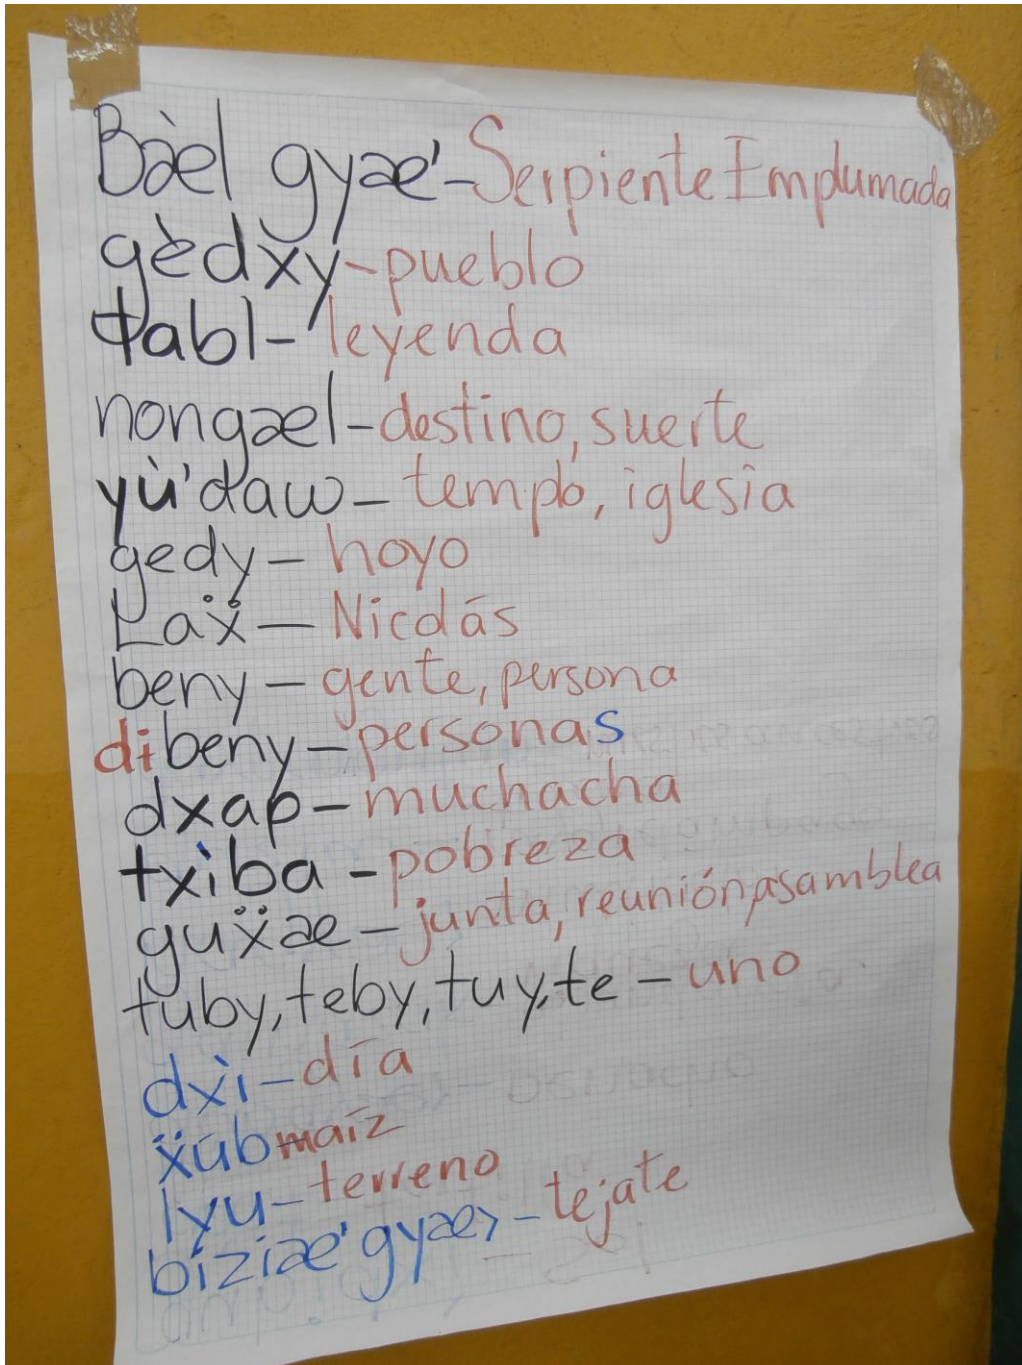 Bàel gyae' - Serpiente Emplumada
gèdxy - pueblo
ɫabl - leyenda
nongael - destino, suerte
yù'daw - templo, iglesia
gedy - hoyo
Ɫaẍ - Nicolás
beny - gente, persona
dɨbeny - personas
dxap - muchacha
txìba - pobreza
guẍae - junta, reunión, asamblea
tuby, teby, tuy, te - uno
dxì - día
ẍùb maíz
lyu - terreno
biziae' gyae' - tejate